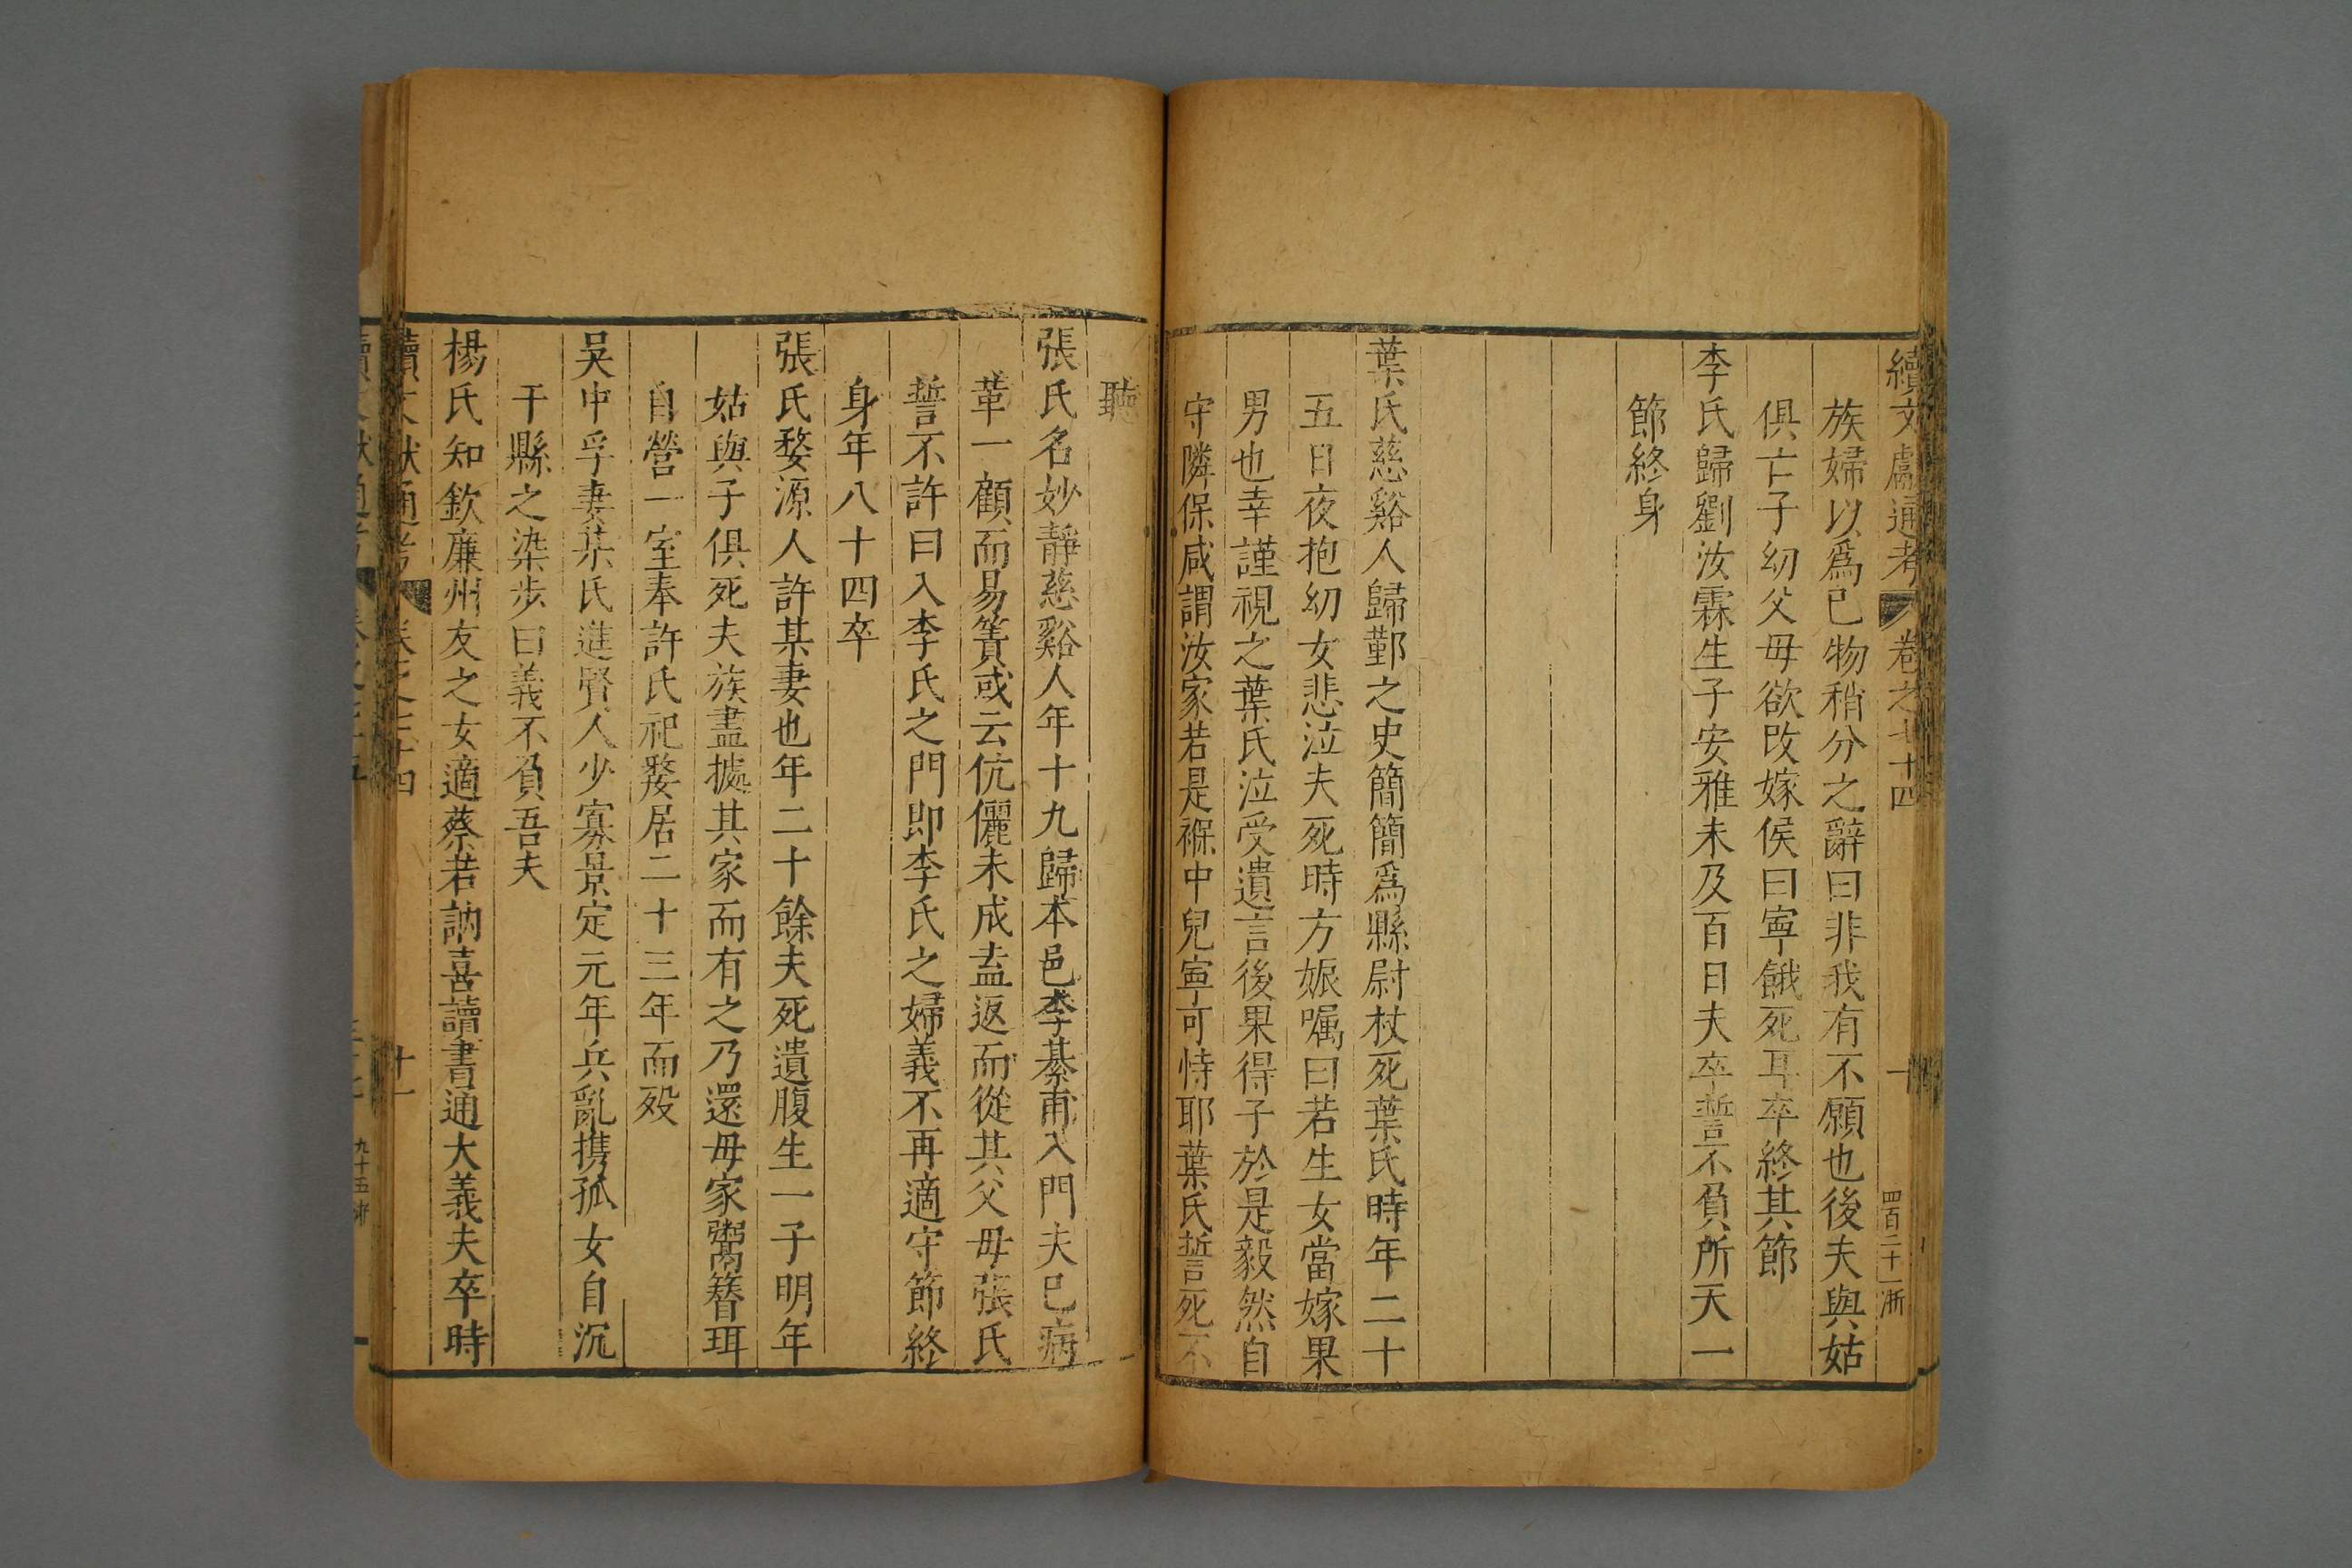 續文獻通考 卷之七十四 十 四百二十一 浙
族婦以爲已物稍分之辭曰非我有不願也後夫與姑
俱亡子幼父母欲改嫁侯曰寧餓死耳卒終其節
李氏歸劉汝霖生子安雅未及百日夫卒誓不負所天一
節終身
葉氏慈谿人歸鄞之史簡簡爲縣尉杖死葉氏時年二十
五日夜抱幼女悲泣夫死時方娠嘱曰若生女當嫁果
男也幸謹視之葉氏泣受遺言後果得子於是毅然自
守隣保咸謂汝家若是褓中兒寧可恃耶葉氏誓死不
聽
張氏名妙靜慈谿人年十九歸本邑李綦甫入門夫已病
革一顧而易簀或云伉儷未成盍返而從其父母張氏
誓不許曰入李氏之門即李氏之婦義不再適守節終
身年八十四卒
張氏婺源人許某妻也年二十餘夫死遺腹生一子明年
姑與子俱死夫族盡㨿其家而有之乃還母家鬻簪珥
自營一室奉許氏祀嫠居二十三年而歿
吴中孚妻某氏進賢人少寡景定元年兵亂携孤女自沉
于縣之染步曰義不負吾夫
楊氏知欽廉州友之女適蔡若訥喜讀書通大義夫卒時
續文獻通考 卷之七十四 十一
九十五